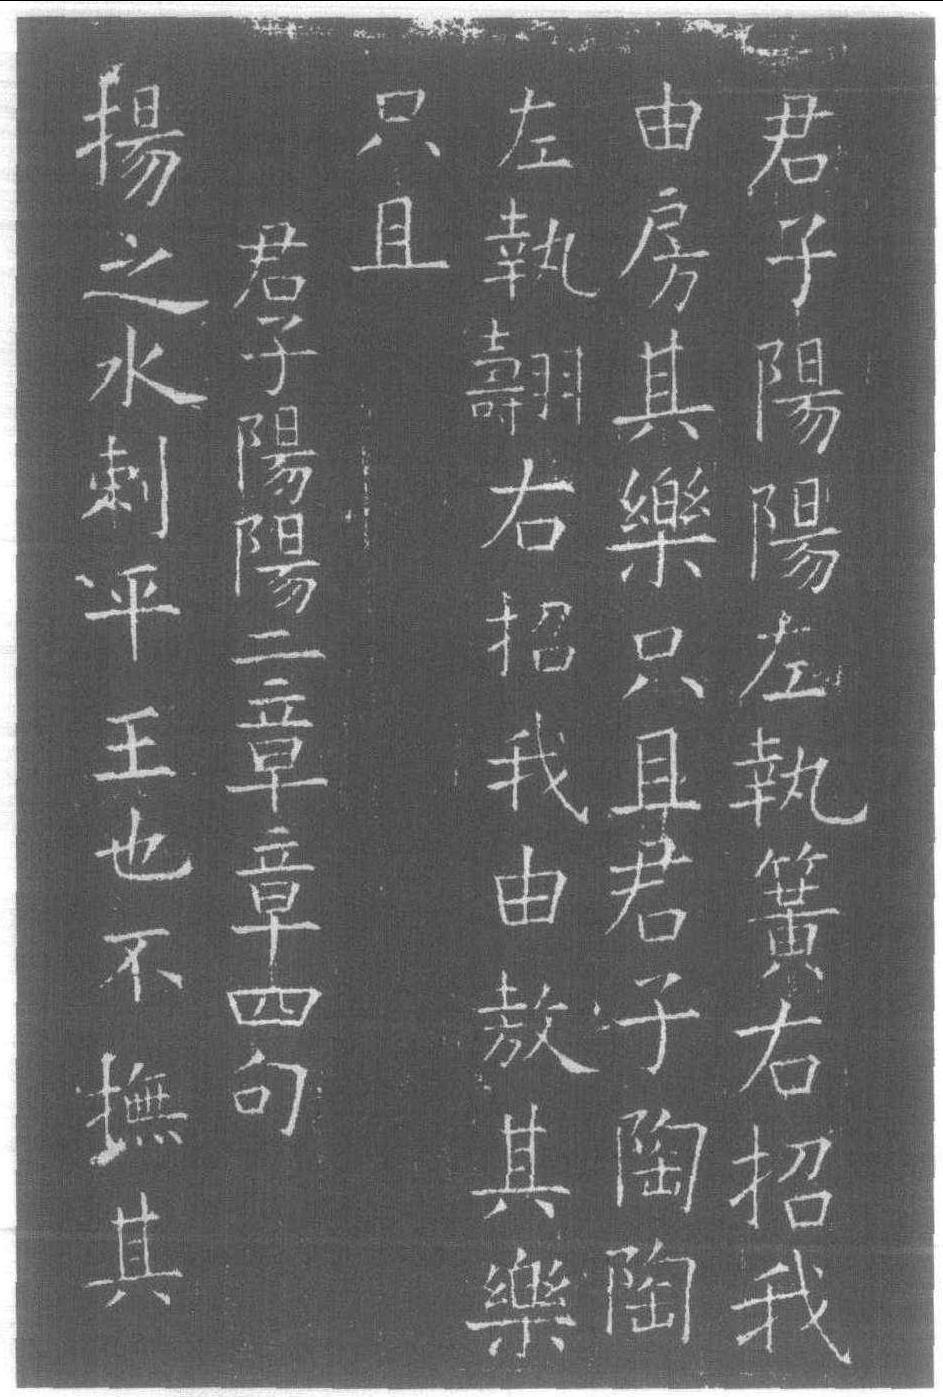 君子陽陽左執簧右招我
由房其樂只且君子陶陶
左執翿右招我由敖其樂
只且
君子陽陽二章章四句
揚之水刺平王也不撫其